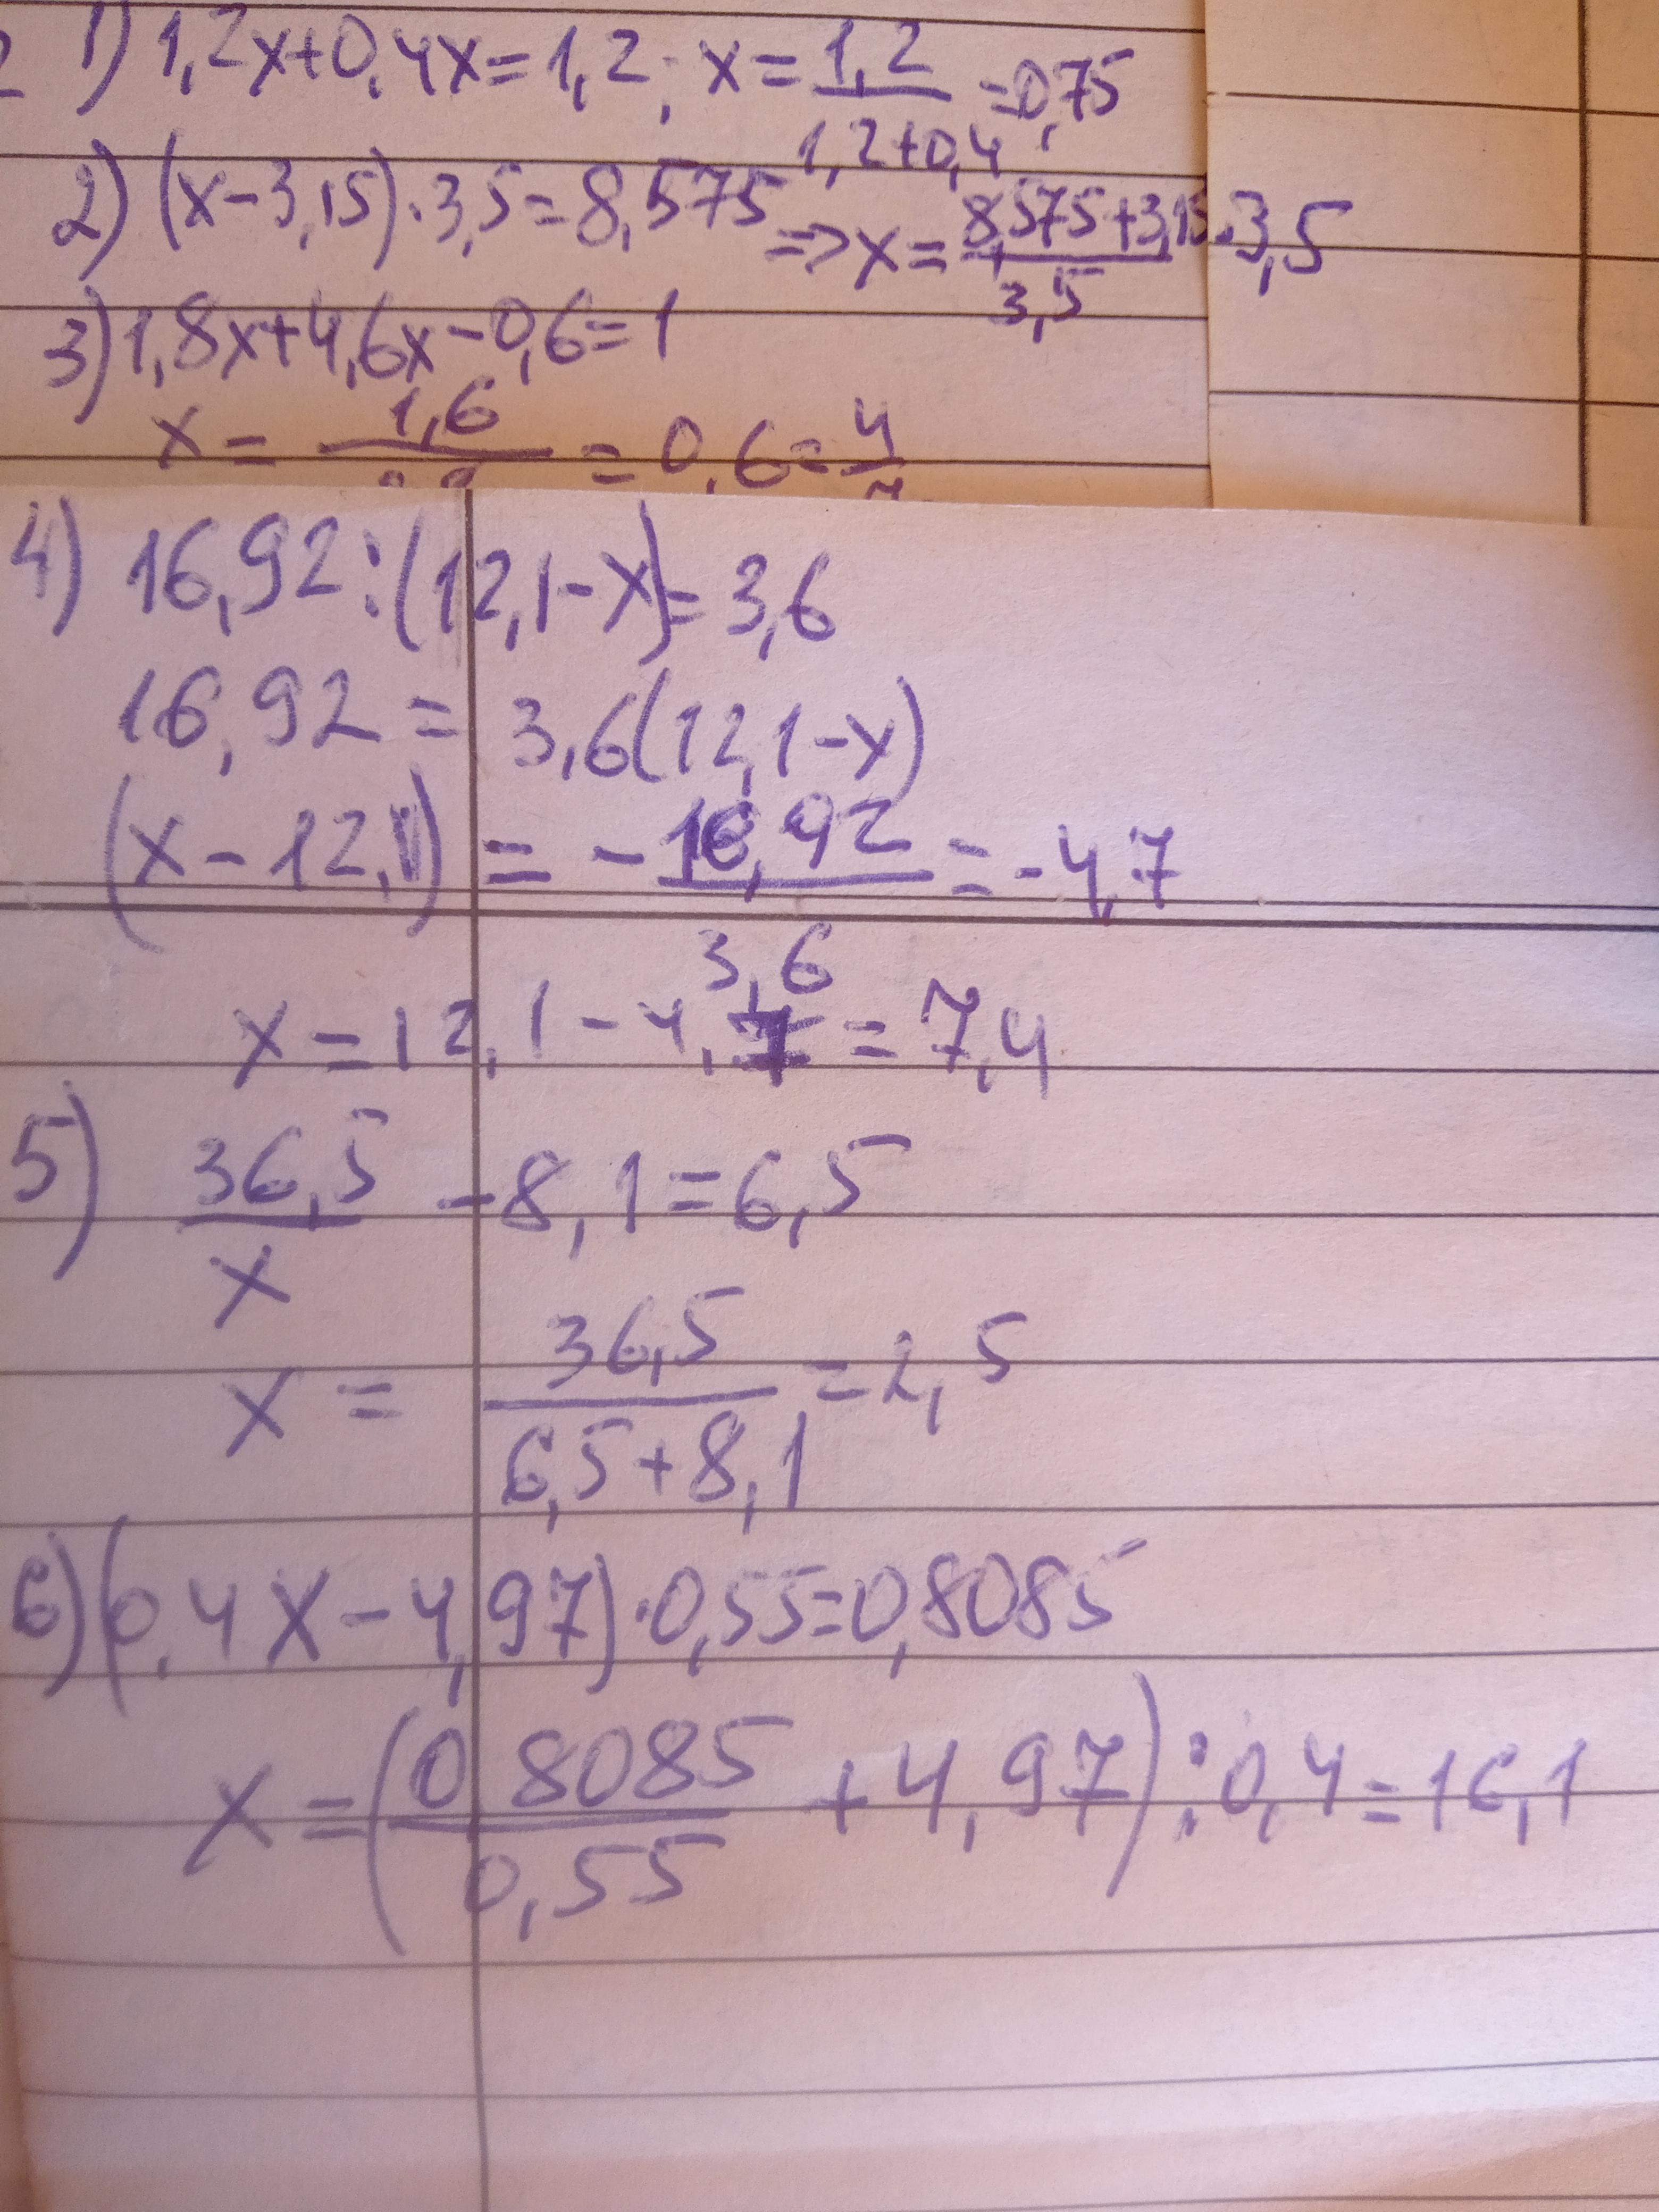 1) 1,2x+0,4x=1,2; x=1,2/(1,2+0,4)=0,75;
2) (x-3,15)·3,5=8,575 => x=(8,575+3,15·3,5)/3,5
3) 1,8x+4,6x-0,6=1
x = 1,6/ = 0,6=4/
4) 16,92:(12,1-x)=3,6
16,92 = 3,6(12,1-x)
(x-12,1) = -16,92/3,6 = -4,7
x=12,1-4,7=7,4
5) 36,5/x -8,1=6,5
x = 36,5/(6,5+8,1) =2,5
6) (0,4x-4,97)·0,55=0,8085
x=(0,8085/0,55 +4,97):0,4=16,1